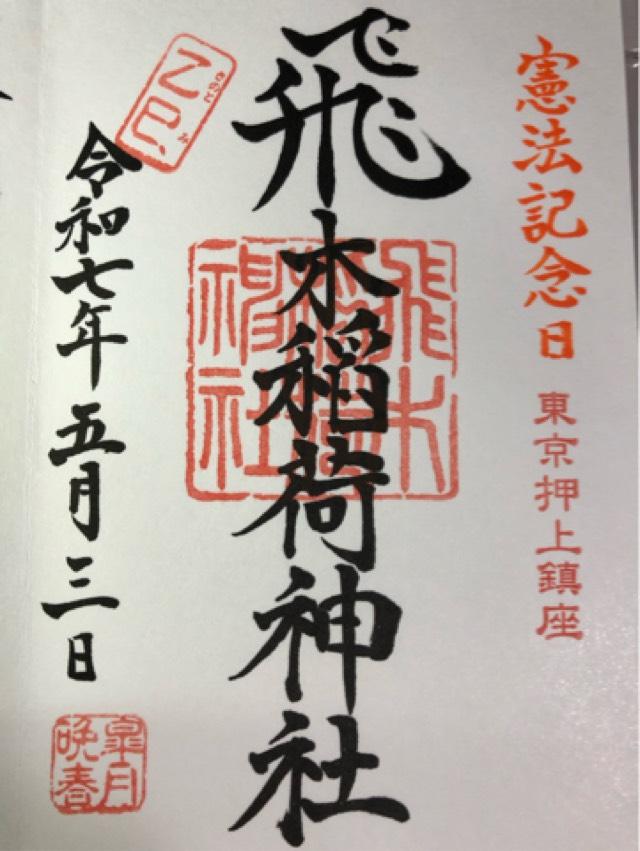 憲法記念日
東京押上鎮座
飛木稲荷神社
飛木稲荷神社
乙巳
きのとみ
令和七年五月三日
皐月
晩春